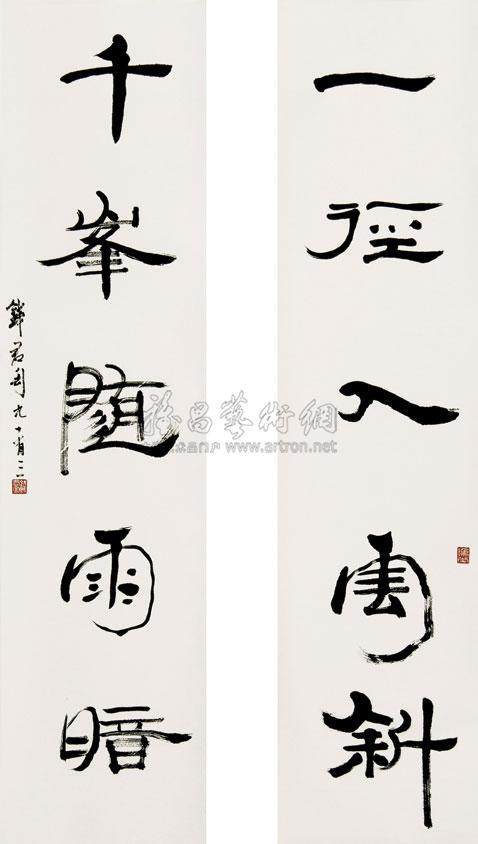 一徑入雲斜
千峯隨雨暗
錢君匋九十有
雅昌藝術網
www.artron.net